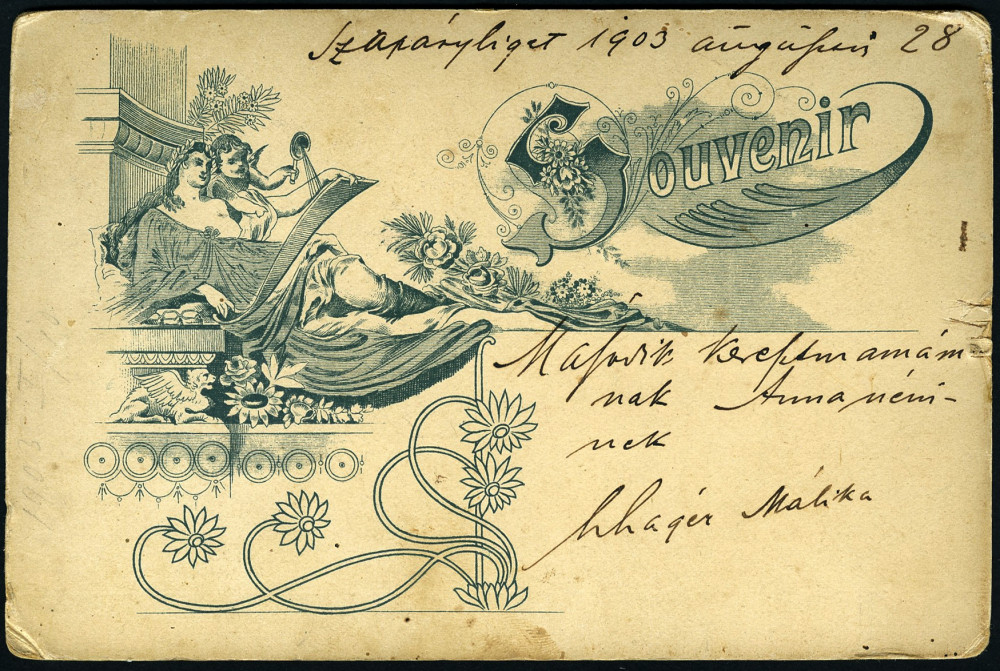 Szapáryliget 1903 auguszus 28
Souvenir
Második keresztmamám
nak Anna néni-
nek
Mályka